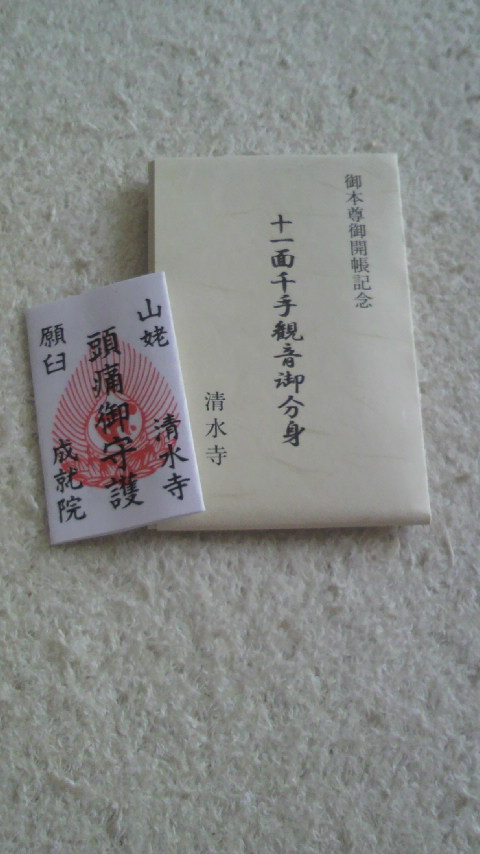 御本尊御開帳記念
十一面千手観音御分身
清水寺
山姥
頭痛御守護
清水寺
願臼
成就院